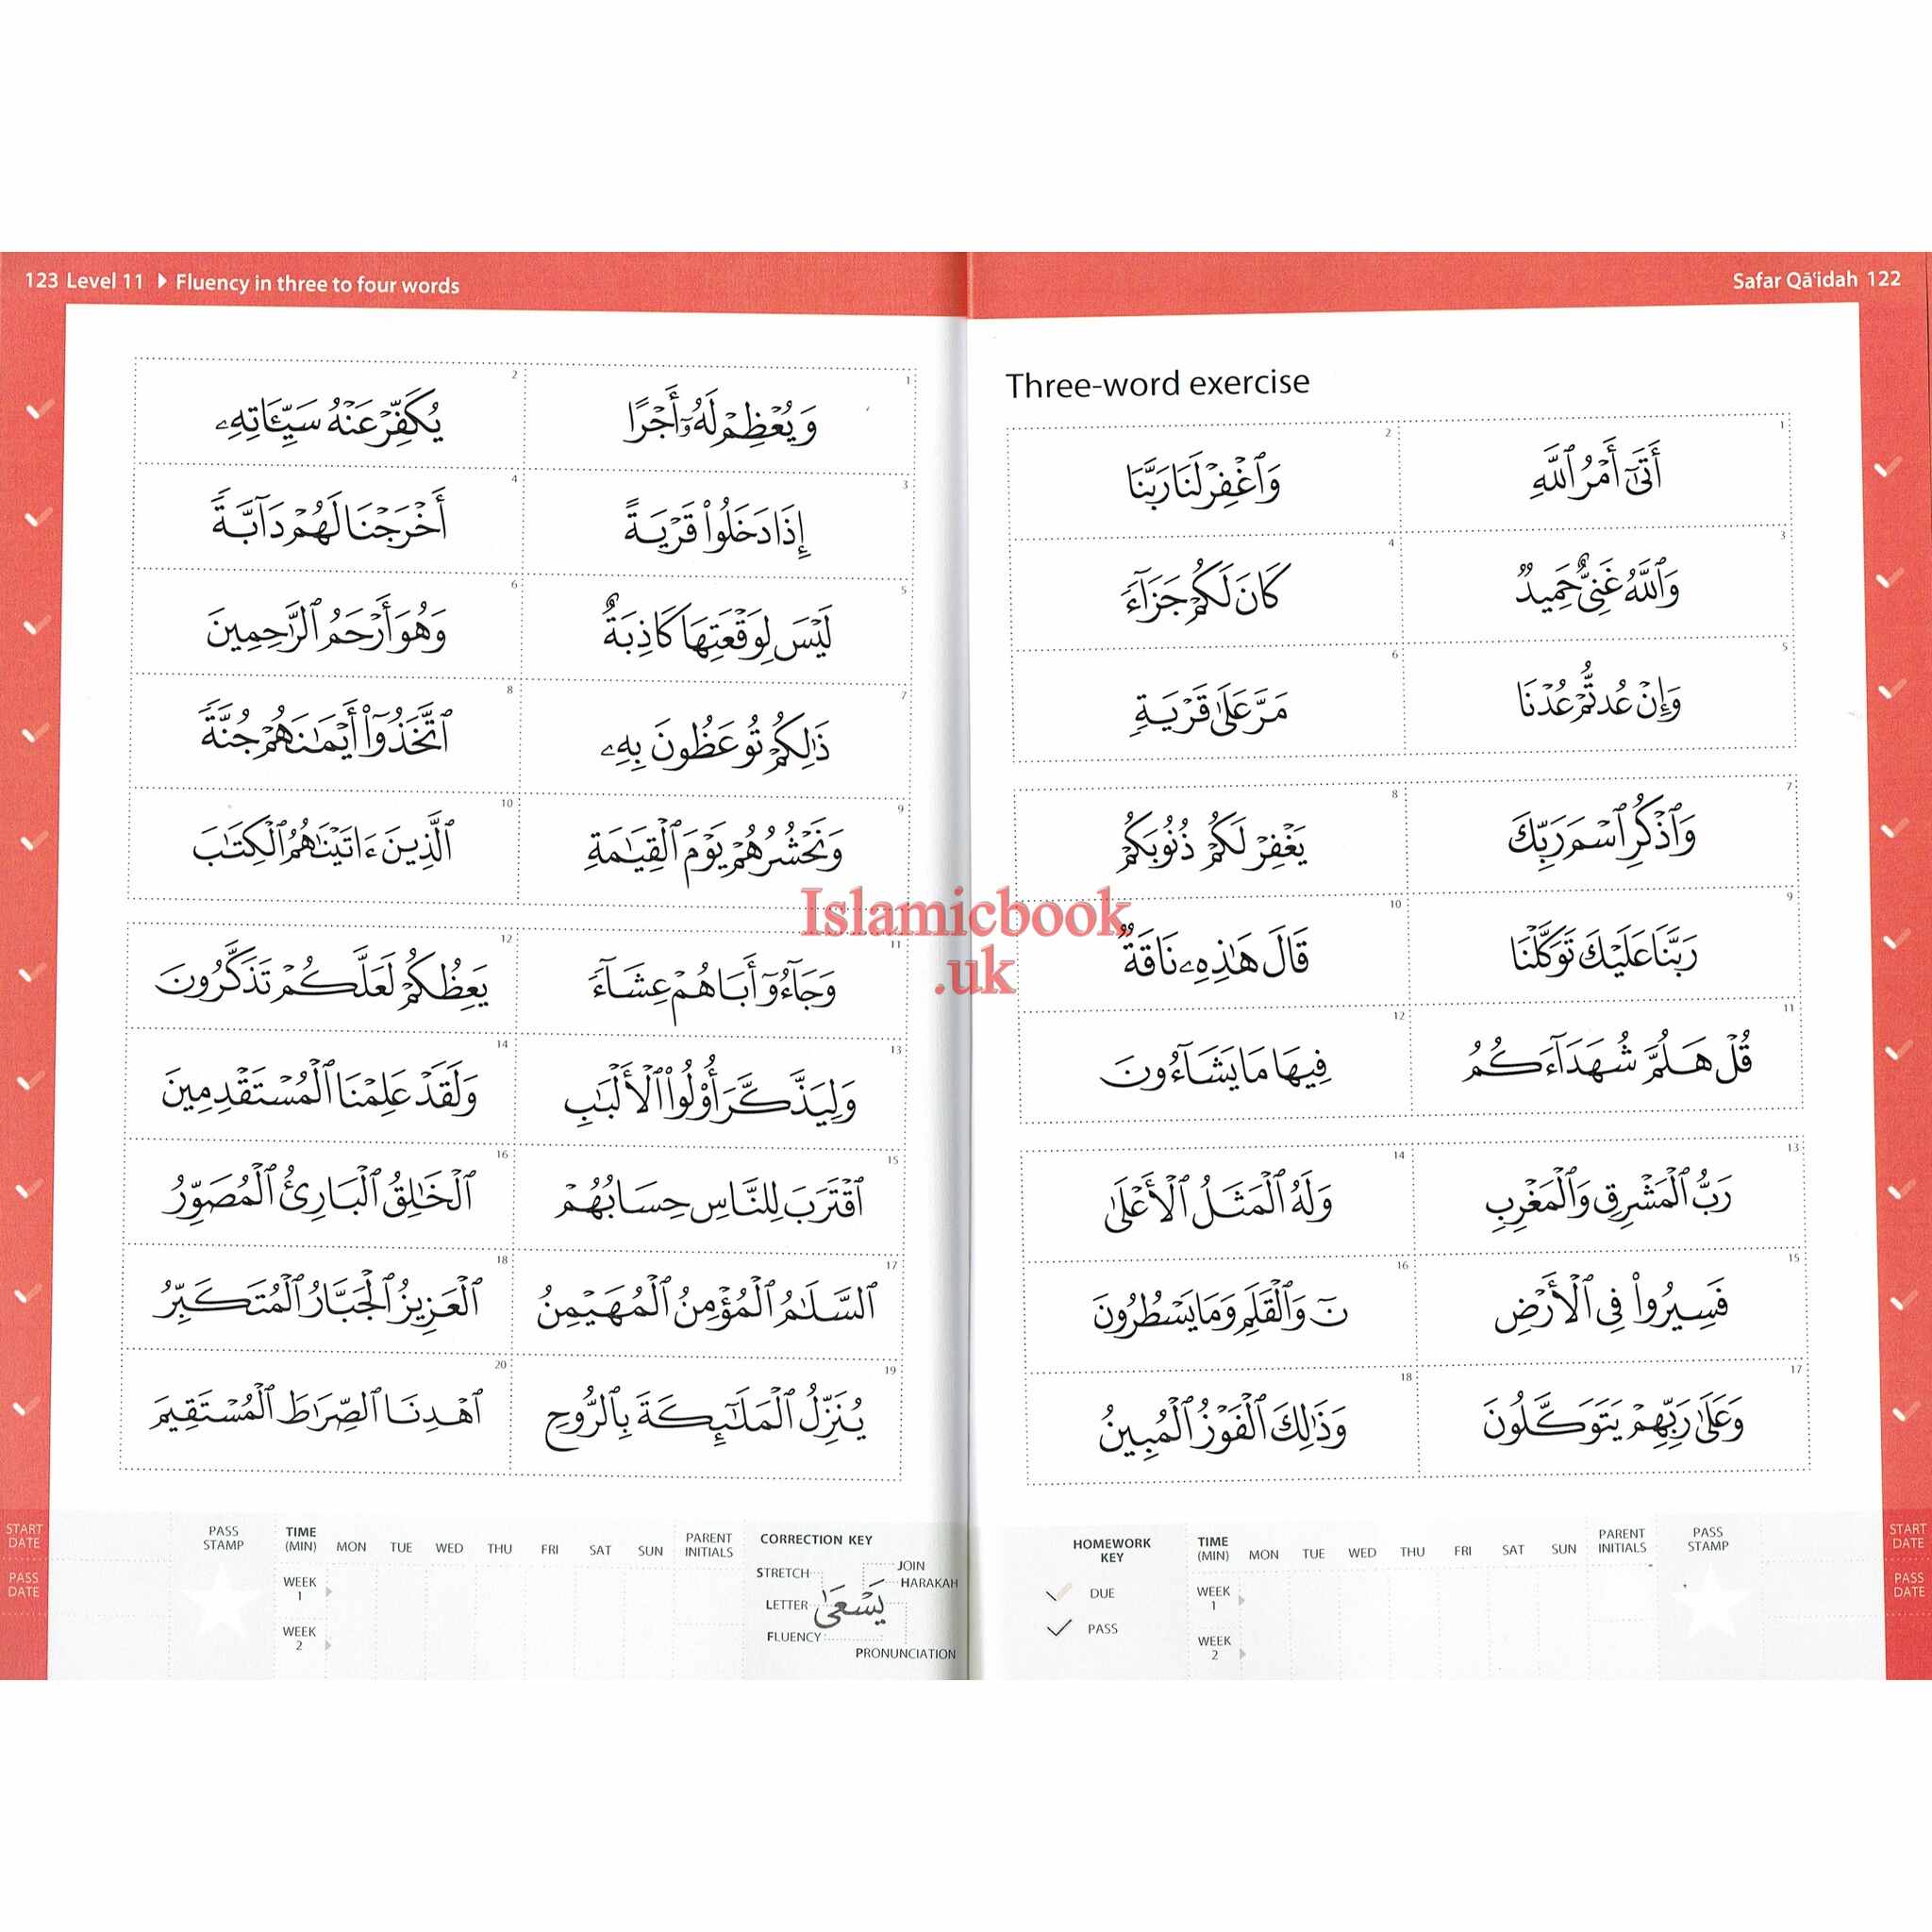 Safar Qā'idah 122
Three-word exercise
1
أَتَىٰٓ أَمْرُ ٱللَّهِ
2
وَٱغْفِرْ لَنَا رَبَّنَا
3
وَٱللَّهُ غَنِيٌّ حَمِيدٌ
4
كَانَ لَكُمْ جَزَآءً
5
وَإِنْ عُدتُّمْ عُدْنَا
6
مَرَّ عَلَىٰ قَرْيَةٍ
7
وَٱذْكُرِ ٱسْمَ رَبِّكَ
8
يَغْفِرْ لَكُمْ ذُنُوبَكُمْ
9
رَبَّنَا عَلَيْكَ تَوَكَّلْنَا
10
قَالَ هَٰذِهِۦ نَاقَةٌ
11
قُلْ هَلُمَّ شُهَدَآءَكُمُ
12
فِيهَا مَا يَشَآءُونَ
13
رَبُّ ٱلْمَشْرِقِ وَٱلْمَغْرِبِ
14
وَلَهُ ٱلْمَثَلُ ٱلْأَعْلَىٰ
15
فَسِيرُوا۟ فِى ٱلْأَرْضِ
16
نٓ وَٱلْقَلَمِ وَمَا يَسْطُرُونَ
17
وَعَلَىٰ رَبِّهِمْ يَتَوَكَّلُونَ
18
وَذَٰلِكَ ٱلْفَوْزُ ٱلْمُبِينُ
HOMEWORK KEY
DUE
PASS
TIME (MIN) MON TUE WED THU FRI SAT SUN PARENT INITIALS PASS STAMP
WEEK 1
WEEK 2
START DATE
PASS DATE
123 Level 11 Fluency in three to four words
1
وَيُعْظِمْ لَهُۥٓ أَجْرًا
2
يُكَفِّرْ عَنْهُ سَيِّـَٔاتِهِۦ
3
إِذَا دَخَلُوا۟ قَرْيَةً
4
أَخْرَجْنَا لَهُمْ دَآبَّةً
5
لَيْسَ لِوَقْعَتِهَا كَاذِبَةٌ
6
وَهُوَ أَرْحَمُ ٱلرَّٰحِمِينَ
7
ذَٰلِكُمْ تُوعَظُونَ بِهِۦ
8
ٱتَّخَذُوٓا۟ أَيْمَٰنَهُمْ جُنَّةً
9
وَنَحْشُرُهُمْ يَوْمَ ٱلْقِيَٰمَةِ
10
ٱلَّذِينَ ءَاتَيْنَٰهُمُ ٱلْكِتَٰبَ
11
وَجَآءُوٓ أَبَاهُمْ عِشَآءً
12
يَعِظُكُمْ لَعَلَّكُمْ تَذَكَّرُونَ
13
وَلِيَذَّكَّرَ أُو۟لُوا۟ ٱلْأَلْبَٰبِ
14
وَلَقَدْ عَلِمْنَا ٱلْمُسْتَقْدِمِينَ
15
ٱقْتَرَبَ لِلنَّاسِ حِسَابُهُمْ
16
ٱلْخَٰلِقُ ٱلْبَارِئُ ٱلْمُصَوِّرُ
17
ٱلسَّلَٰمُ ٱلْمُؤْمِنُ ٱلْمُهَيْمِنُ
18
ٱلْعَزِيزُ ٱلْجَبَّارُ ٱلْمُتَكَبِّرُ
19
يُنَزِّلُ ٱلْمَلَٰٓئِكَةَ بِٱلرُّوحِ
20
ٱهْدِنَا ٱلصِّرَٰطَ ٱلْمُسْتَقِيمَ
START DATE
PASS DATE
PASS STAMP TIME (MIN) MON TUE WED THU FRI SAT SUN PARENT INITIALS
WEEK 1
WEEK 2
CORRECTION KEY
STRETCH
LETTER
FLUENCY
يَسْعَىٰ
JOIN
HARAKAH
PRONUNCIATION
Islamicbook
.uk